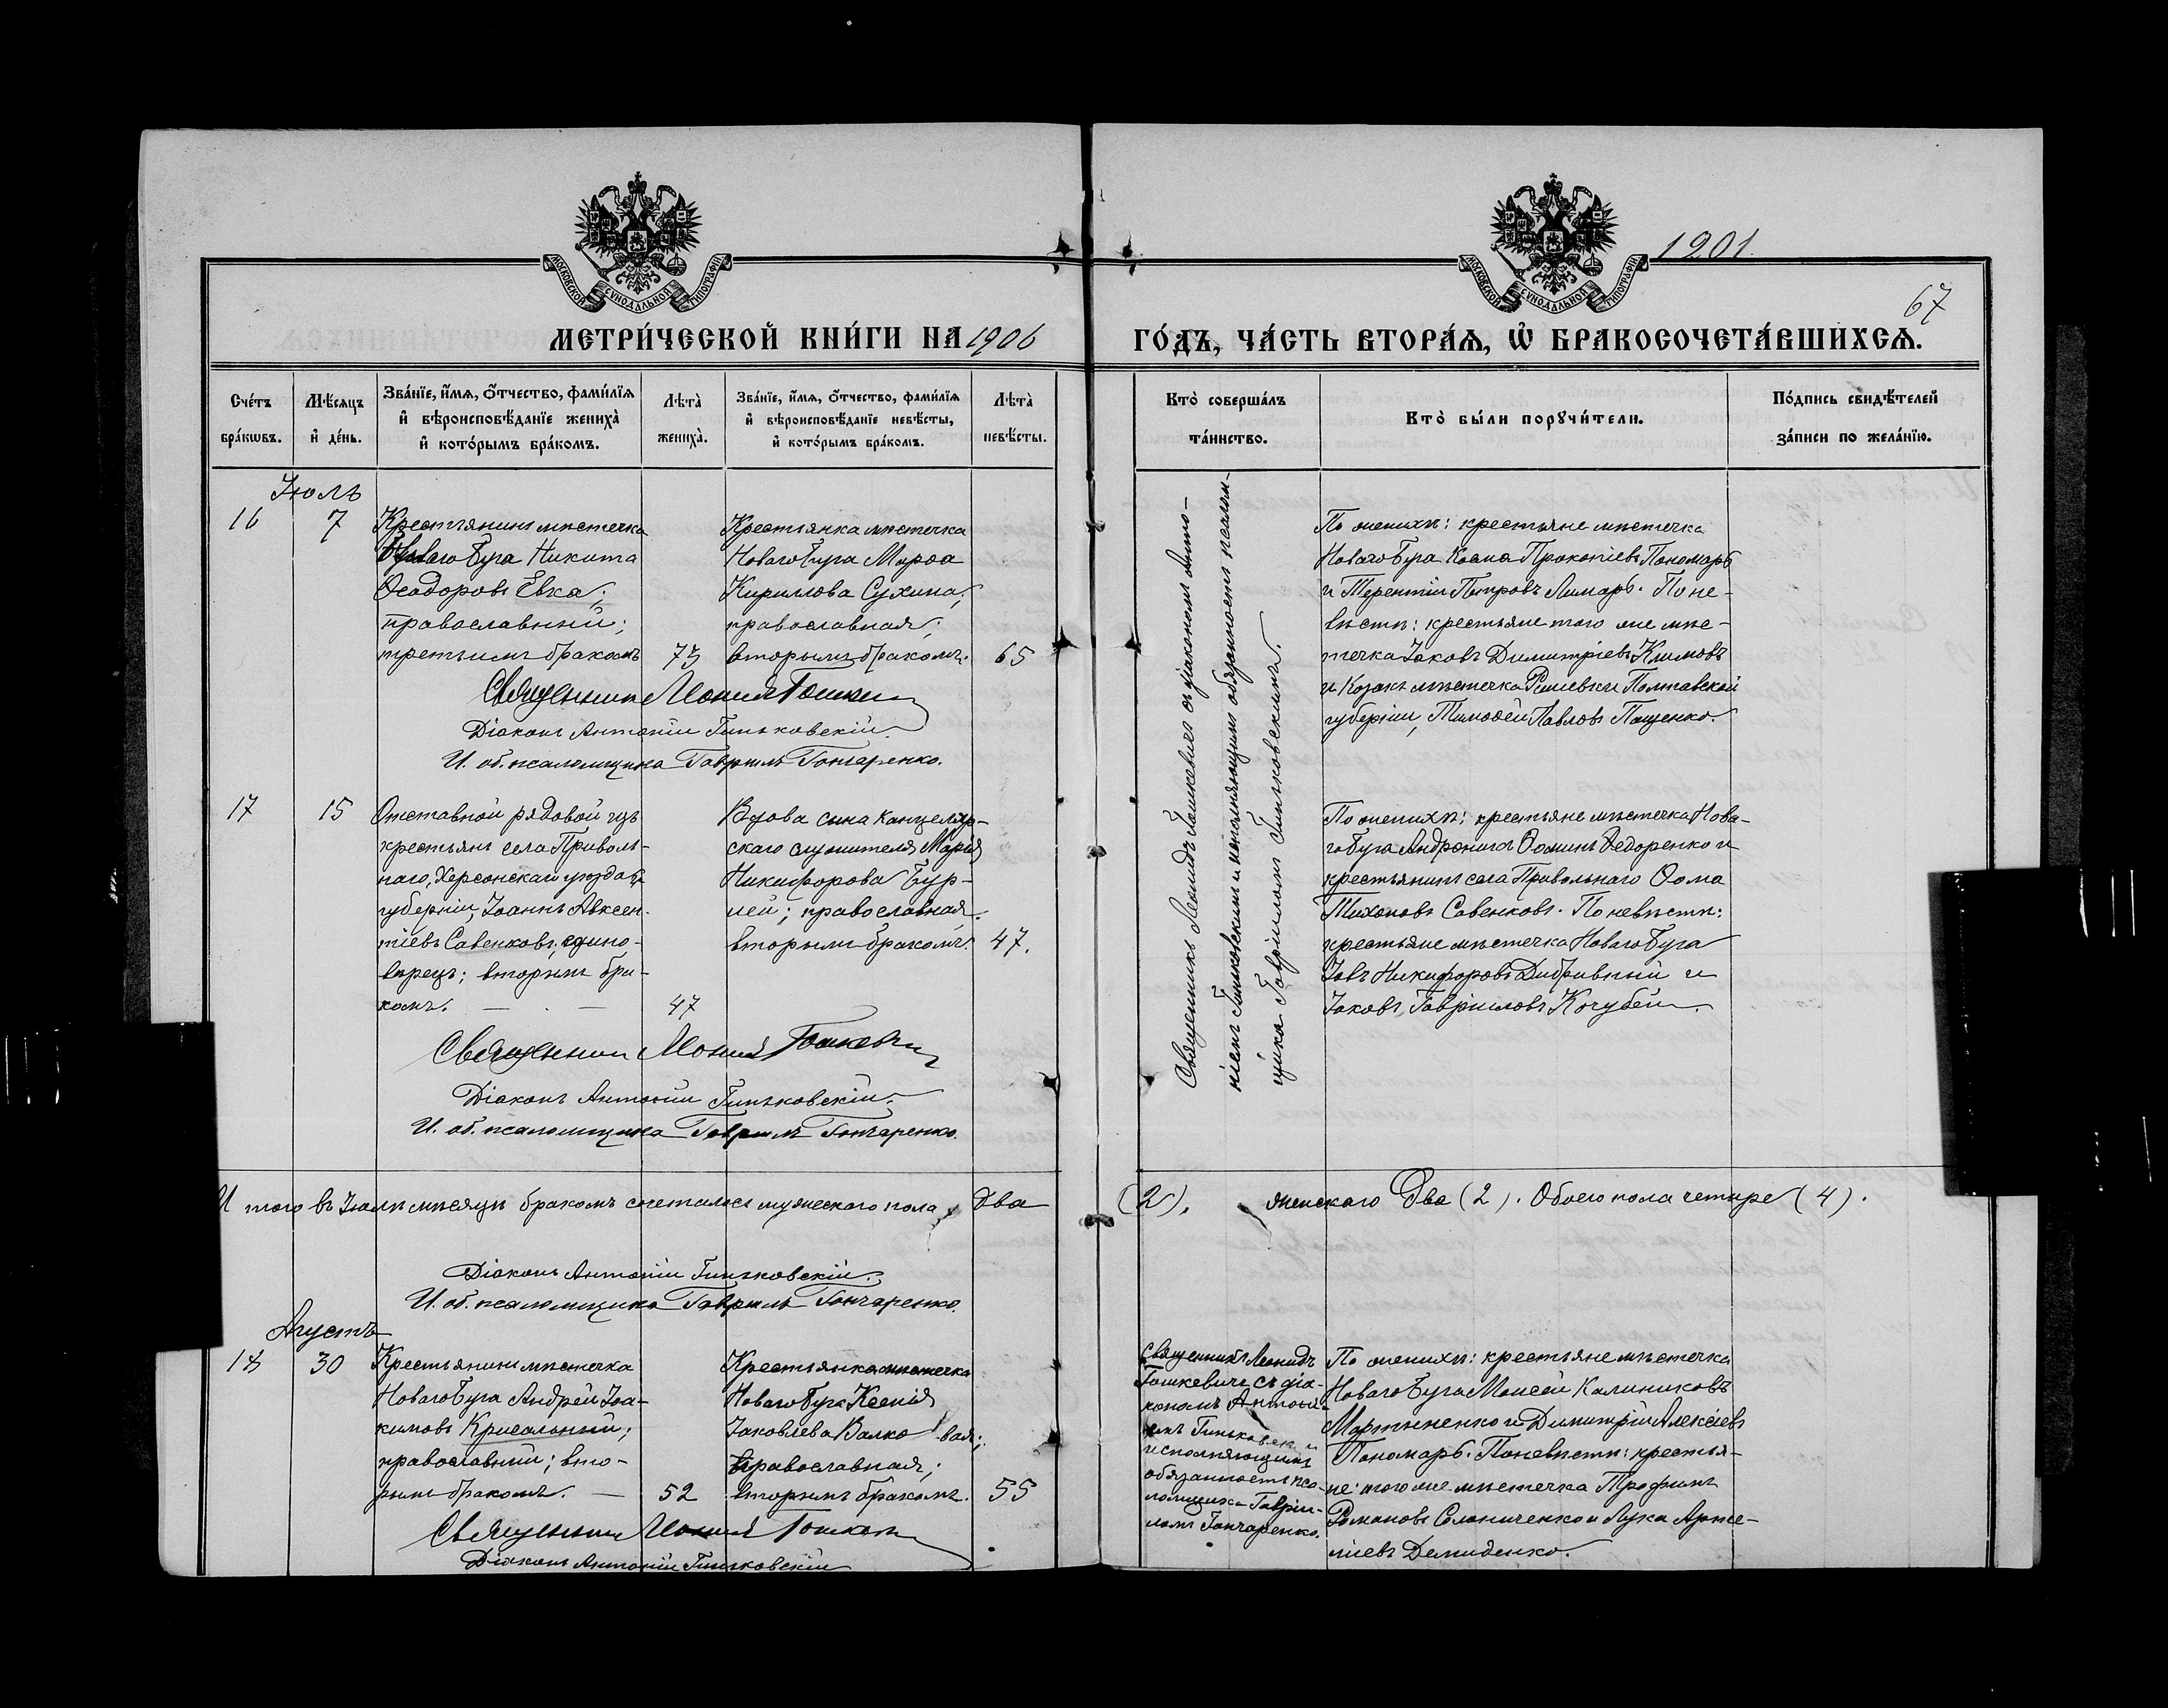 1201.
67
МОСКОВСКОЙ СѴНОДАЛЬНОЙ ТИПОГРАФІИ
МОСКОВСКОЙ СѴНОДАЛЬНОЙ ТИПОГРАФІИ
МЕТРИ́ЧЕСКОЙ КНИ́ГИ НА 1906 ГО́ДЪ, ЧА́СТЬ ВТОРА́Ѧ, Ѡ҆ БРАКОСОЧЕТА́ВШИХСѦ.
Сче́тъ бра́кѡвъ.
Мѣ́сѧцъ и҆ де́нь.
Зва́нїе, и҆́мѧ, ѻ҆́тчество, фами́лїѧ и҆ вѣроисповѣ́данїе жениха̀ и҆ кото́рымъ бра́комъ.
Лѣта̀ жениха̀.
Зва́нїе, и҆́мѧ, ѻ҆́тчество, фами́лїѧ и҆ вѣроисповѣ́данїе невѣ́сты, и҆ кото́рымъ бра́комъ.
Лѣта̀ невѣ́сты.
Кто̀ соверша́лъ та́инство.
Кто̀ бы́ли порꙋчи́тели.
По́дпись свидѣ́телей за́писи по жела́нїю.
Іюль
16
7
Крестьянинъ мѣстечка
Новаго Буга Никита
Ѳеодоровъ Евка;
православный;
третьимъ бракомъ
73
Крестьянка мѣстечка
Новаго Буга Марѳа
Кириллова Сухина;
православная;
вторымъ бракомъ.
65
Священникъ Леонидъ Гошкевичъ съ діакономъ Анто-
ніемъ Гиньковскимъ и исполняющимъ обязанность псалом-
щика Гавріиломъ
По женихѣ: крестьяне мѣстечка
Новаго Буга Косма Прокопіевъ Пономарь
и Терентій Петровъ Лимарь. По не-
вѣстѣ: крестьяне того же мѣс-
течка Іаковъ Димитріевъ Климовъ
и Козакъ мѣстечка Полтавской
губерніи, Тимоѳей Павловъ Пащенко.
Священникъ Гошкевичъ
Діаконъ Антоній Гиньковскій.
И. об. псаломщика Гавріилъ Гончаренко.
17
15
Отставной рядовой изъ
крестьянъ села Приволь-
наго, Херсонскаго уѣзда и
губерніи, Іоаннъ Авксен-
тіевъ Савенковъ, едино-
вѣрецъ; вторымъ бра-
комъ.
47
Вдова сына канцеляр-
скаго служителя Марія
Никифорова Бур-
лей; православная.
вторымъ бракомъ.
47.
По женихѣ: крестьяне мѣстечка Нова-
го Буга Андроникъ Ѳоминъ Ѳедоренко и
крестьянинъ села Привольнаго Ѳома
Тихоновъ Савенковъ. По невѣстѣ:
крестьяне мѣстечка Новаго Буга
Іовъ Никифоровъ Дибривный и
Іаковъ Гавріиловъ Кочубей.
Священникъ Гошкевичъ
Діаконъ Антоній Гиньковскій.
И. об. псаломщика Гавріилъ Гончаренко.
И того въ Іюлѣ мѣсяцѣ бракомъ сочеталось мужескаго пола два (2), женскаго два (2). Обоего пола четыре (4).
Діаконъ Антоній Гиньковскій.
И. об. псаломщика Гавріилъ Гончаренко.
Августъ
18
30
Крестьянинъ мѣстечка
Новаго Буга Андрей Іоа-
кимовъ
православный; вто-
рымъ бракомъ.
52
Крестьянка мѣстечка
Новаго Буга Ксенія
Іаковлева Валко вая;
православная;
вторымъ бракомъ.
55
Священникъ Леонидъ
Гошкевичъ съ діа-
кономъ Антоні-
емъ Гиньковск и
исполняющимъ
обязанность пса-
ломщика Гавріи-
ломъ Гончаренко.
По женихѣ: крестьяне мѣстечка
Новаго Буга Моисей Калиниковъ
Мартыненко и Димитрій Алексіевъ
Пономарь. По невѣстѣ: крестья-
не того же мѣстечка Трофимъ
Романовъ Слониченко и Лука Арте-
міевъ Демиденко.
Священникъ
Діаконъ Антоній Гиньковскій